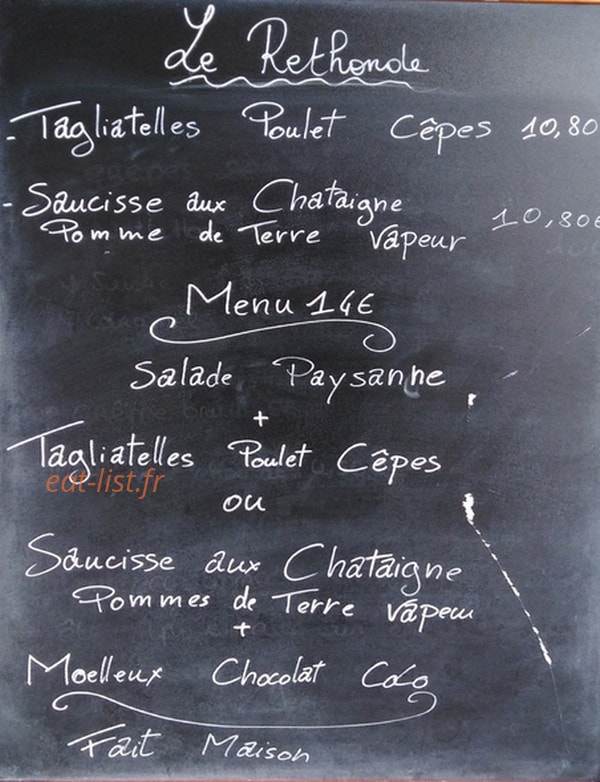 Le Rethonde
- Tagliatelles Poulet Cêpes 10,80
- Saucisse aux Chataigne 10,80€
Pomme de Terre vapeur
Menu 14€
Salade Paysanne
+
Tagliatelles Poulet Cêpes
eat-list.fr
ou
Saucisse aux Chataigne
Pommes de Terre vapeur
+
Moelleux Chocolat Coco
Fait Maison